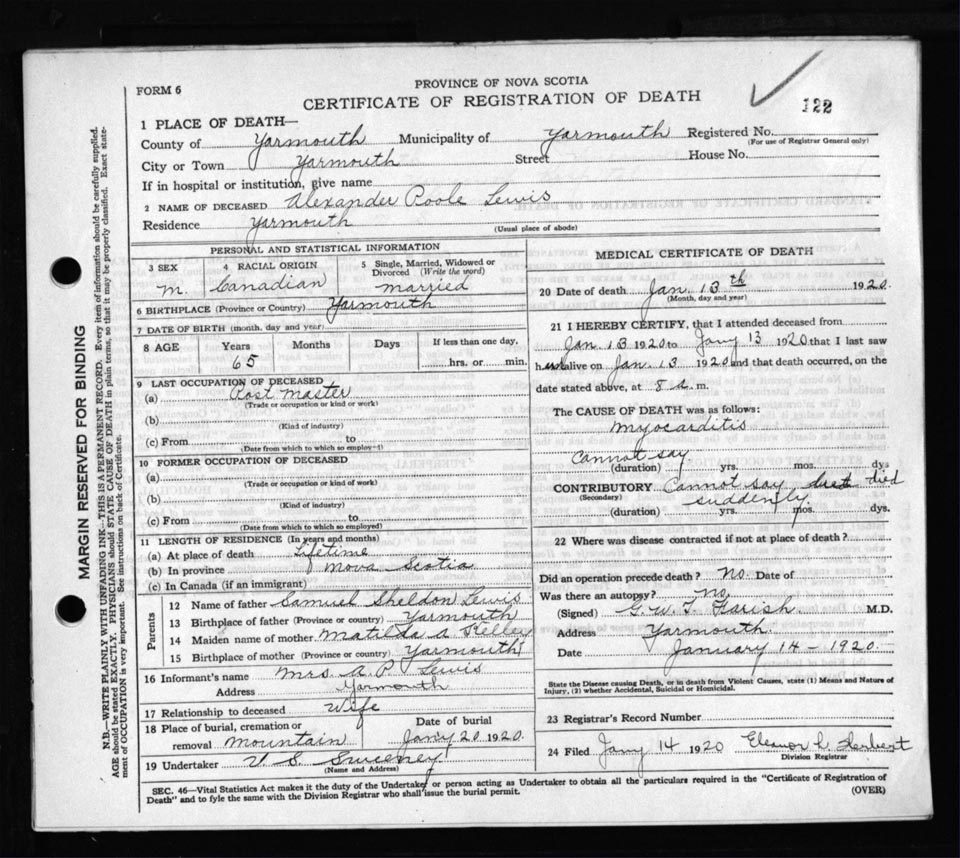 PROVINCE OF NOVA SCOTIA
FORM 6
CERTIFICATE OF REGISTRATION OF DEATH
122
1 PLACE OF DEATH—
County of Yarmouth Municipality of Yarmouth Registered No.
(For use of Registrar General only)
City or Town Yarmouth Street House No.
If in hospital or institution, give name
2 NAME OF DECEASED Alexander Poole Lewis
Residence Yarmouth
(Usual place of abode)
PERSONAL AND STATISTICAL INFORMATION
3 SEX 4 RACIAL ORIGIN 5 Single, Married, Widowed or
Divorced (Write the word)
M. Canadian Married
6 BIRTHPLACE (Province or Country) Yarmouth
7 DATE OF BIRTH (month, day and year)
8 AGE Years Months Days If less than one day,
65 hrs. or min.
9 LAST OCCUPATION OF DECEASED
(a) Post Master
(Trade or occupation or kind or work)
(b)
(Kind of industry)
(c) From to
(Date from which to which so employed)
10 FORMER OCCUPATION OF DECEASED
(a)
(Trade or occupation or kind of work)
(b)
(Kind of industry)
(c) From to
(Date from which to which so employed)
11 LENGTH OF RESIDENCE (In years and months)
(a) At place of death Lifetime
(b) In province Nova Scotia
(c) In Canada (if an immigrant)
Parents
12 Name of father Samuel Sheldon Lewis
13 Birthplace of father (Province or country) Yarmouth
14 Maiden name of mother Matilda A Kelley
15 Birthplace of mother (Province or country) Yarmouth
16 Informant's name Mrs A. P. Lewis
Address Yarmouth
17 Relationship to deceased Wife
18 Place of burial, cremation or Date of burial
removal Mountain Jany 20 1920.
19 Undertaker V S Sweeney
(Name and Address)
MEDICAL CERTIFICATE OF DEATH
20 Date of death Jan. 13th 1920.
(Month, day and year)
21 I HEREBY CERTIFY, that I attended deceased from
Jan 13 1920 to Jany 13 1920 that I last saw
h alive on Jan. 13 1920 and that death occurred, on the
date stated above, at 8 a. m.
The CAUSE OF DEATH was as follows:
Myocarditis
Cannot say
(duration) yrs. mos. dys
CONTRIBUTORY Cannot say died
(Secondary) suddenly
(duration) yrs. mos. dys.
22 Where was disease contracted if not at place of death?
Did an operation precede death? No. Date of
Was there an autopsy? no
(Signed) G. W. T. Farish. M.D.
Address Yarmouth.
Date January 14 - 1920.
State the Disease causing Death, or in death from Violent Causes, state (1) Means and Nature of
Injury, (2) whether Accidental, Suicidal or Homicidal.
23 Registrar's Record Number
24 Filed Jany 14 1920 Eleanor L. Herbert
Division Registrar
SEC. 46—Vital Statistics Act makes it the duty of the Undertaker or person acting as Undertaker to obtain all the particulars required in the "Certificate of Registration of
Death" and to fyle the same with the Division Registrar who shall issue the burial permit. (OVER)
MARGIN RESERVED FOR BINDING
N.B.—WRITE PLAINLY WITH UNFADING INK—THIS IS A PERMANENT RECORD. Every item of information should be carefully supplied.
AGE should be stated EXACTLY. PHYSICIANS should STATE CAUSE OF DEATH in plain terms, so that it may be properly classified. Exact state-
ment of OCCUPATION is very important. See instructions on back of Certificate.